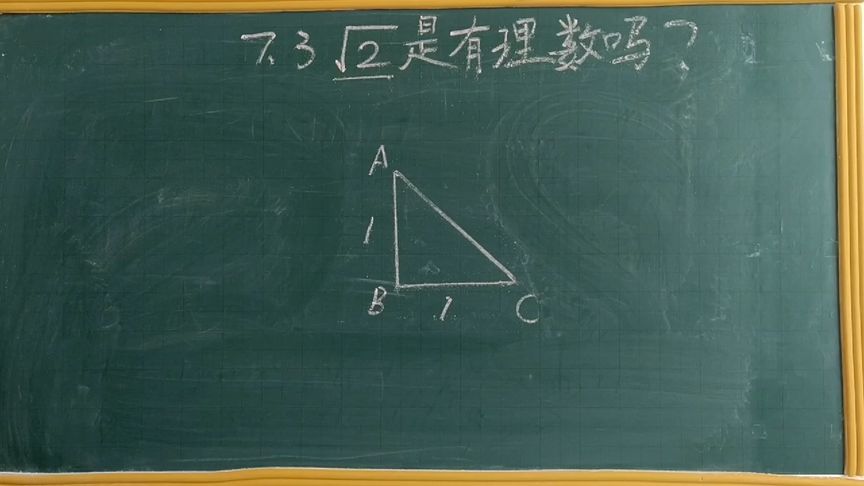 7.3 √2是有理数吗?
A
1
B
1
C